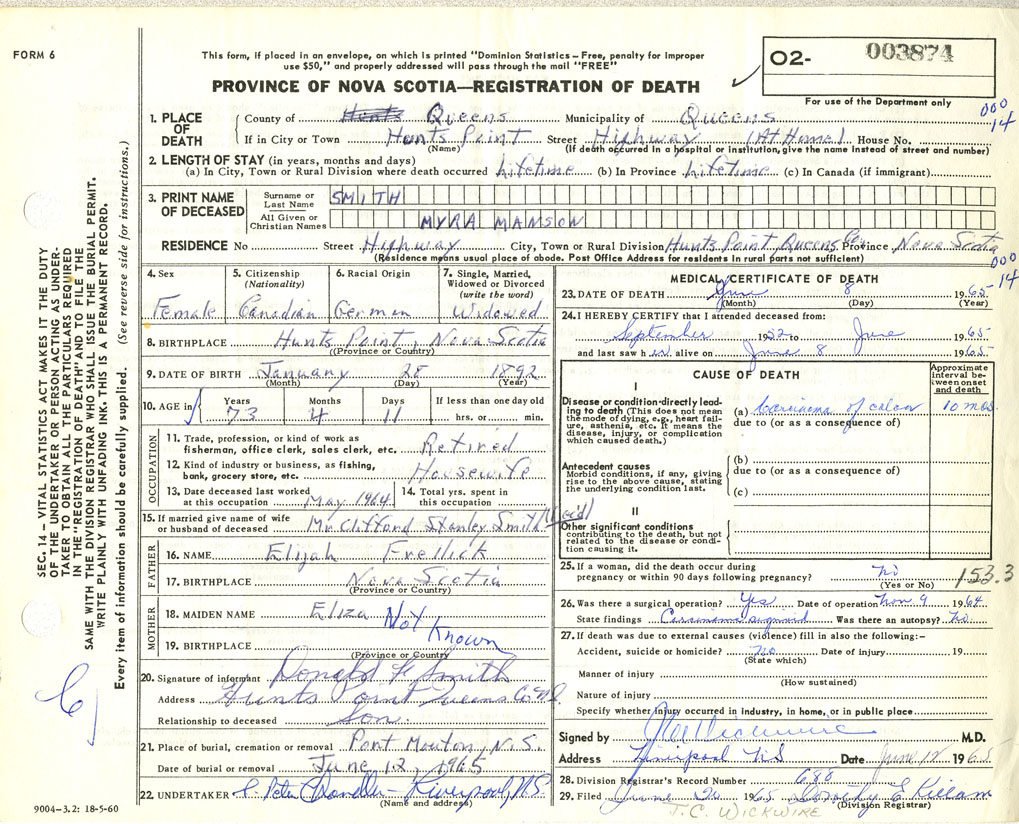 FORM 6
This form, if placed in an envelope, on which is printed "Dominion Statistics – Free, penalty for improper
use $50," and properly addressed will pass through the mail "FREE"
PROVINCE OF NOVA SCOTIA—REGISTRATION OF DEATH
O2- 003874
For use of the Department only
000
14
SEC. 14 – VITAL STATISTICS ACT MAKES IT THE DUTY
OF THE UNDERTAKER OR PERSON ACTING AS UNDER-
TAKER TO OBTAIN ALL THE PARTICULARS REQUIRED
IN THE "REGISTRATION OF DEATH" AND TO FILE THE
SAME WITH THE DIVISION REGISTRAR WHO SHALL ISSUE THE BURIAL PERMIT.
WRITE PLAINLY WITH UNFADING INK. THIS IS A PERMANENT RECORD.
Every item of information should be carefully supplied. (See reverse side for instructions.)
1. PLACE OF DEATH
County of Hunts Queens Municipality of Queens
If in City or Town Hunts Point Street Highway (At Home) House No.
(Name) (If death occurred in a hospital or institution, give the name instead of street and number)
2. LENGTH OF STAY (in years, months and days)
(a) In City, Town or Rural Division where death occurred Lifetime (b) In Province Lifetime (c) In Canada (if immigrant)
3. PRINT NAME OF DECEASED
Surname or Last Name SMITH
All Given or Christian Names MYRA MANSON
RESIDENCE No Street Highway City, Town or Rural Division Hunts Point Queens Co Province Nova Scotia
(Residence means usual place of abode. Post Office Address for residents in rural parts not sufficient)
000
14
4. Sex Female
5. Citizenship (Nationality) Canadian
6. Racial Origin German
7. Single, Married, Widowed or Divorced (write the word) Widowed
8. BIRTHPLACE Hunts Point, Nova Scotia
(Province or Country)
9. DATE OF BIRTH January 28 1892
(Month) (Day) (Year)
10. AGE in Years Months Days If less than one day old
73 4 11 hrs. or min.
OCCUPATION
11. Trade, profession, or kind of work as
fisherman, office clerk, sales clerk, etc. Retired
12. Kind of industry or business, as fishing,
bank, grocery store, etc. Housewife
13. Date deceased last worked
at this occupation May 1964
14. Total yrs. spent in
this occupation
15. If married give name of wife
or husband of deceased Mr Clifford Stanley Smith (Dec'd)
FATHER
16. NAME Elijah Frellick
17. BIRTHPLACE Nova Scotia
(Province or Country)
MOTHER
18. MAIDEN NAME Eliza Not
19. BIRTHPLACE Known
(Province or Country)
20. Signature of informant Donald F Smith
Address Hunts Point Queens Co N.S.
Relationship to deceased Son.
21. Place of burial, cremation or removal Port Mouton, N.S.
Date of burial or removal June 12, 1965
22. UNDERTAKER C. Peter Chandler - Liverpool, N.S.
(Name and address)
9004–3.2: 18-5-60
MEDICAL CERTIFICATE OF DEATH
23. DATE OF DEATH June 8 1965
(Month) (Day) (Year)
24. I HEREBY CERTIFY that I attended deceased from:
September 1952 to June 1965
and last saw her alive on June 8 1965
CAUSE OF DEATH
Approximate interval between onset and death
I
Disease or condition directly lead-
ing to death (This does not mean
the mode of dying, e.g., heart fail-
ure, asthenia, etc. It means the
disease, injury, or complication
which caused death.)
(a) Carcinoma of colon 10 mos.
due to (or as a consequence of)
Antecedent causes
Morbid conditions, if any, giving
rise to the above cause, stating
the underlying condition last.
(b)
due to (or as a consequence of)
(c)
II
Other significant conditions
contributing to the death, but not
related to the disease or condi-
tion causing it.
25. If a woman, did the death occur during
pregnancy or within 90 days following pregnancy? no
(Yes or No)
153.3
26. Was there a surgical operation? Yes Date of operation Nov 9 1964
State findings Carcinoma sigmoid Was there an autopsy? No.
27. If death was due to external causes (violence) fill in also the following:–
Accident, suicide or homicide? no Date of injury 19
(State which)
Manner of injury
(How sustained)
Nature of injury
Specify whether injury occurred in industry, in home, or in public place
Signed by Wickwire M.D.
Address Liverpool NS Date June 12 1965
28. Division Registrar's Record Number 688
29. Filed June 20 1965 Dorothy E Killam
(Division Registrar)
J.C. WICKWIRE